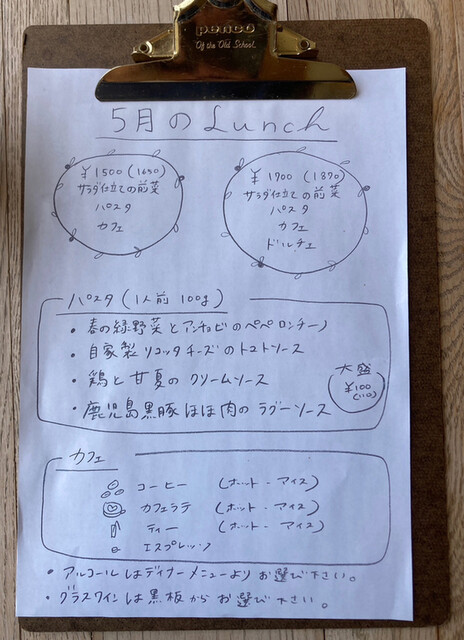 penco
"Of the Old School"
5月のLunch
¥1500(1650)
サラダ仕立ての前菜
パスタ
カフェ
¥1700(1870)
サラダ仕立ての前菜
パスタ
カフェ
ドルチェ
パスタ(1人前 100g)
・春の緑野菜とアンチョビのペペロンチーノ
・自家製リコッタチーズのトマトソース
・鶏と甘夏のクリームソース
・鹿児島黒豚ほほ肉のラグーソース
大盛
¥100
(110)
カフェ
コーヒー (ホット・アイス)
カフェラテ (ホット・アイス)
ティー (ホット・アイス)
エスプレッソ
・アルコールはディナーメニューよりお選び下さい。
・グラスワインは黒板からお選び下さい。